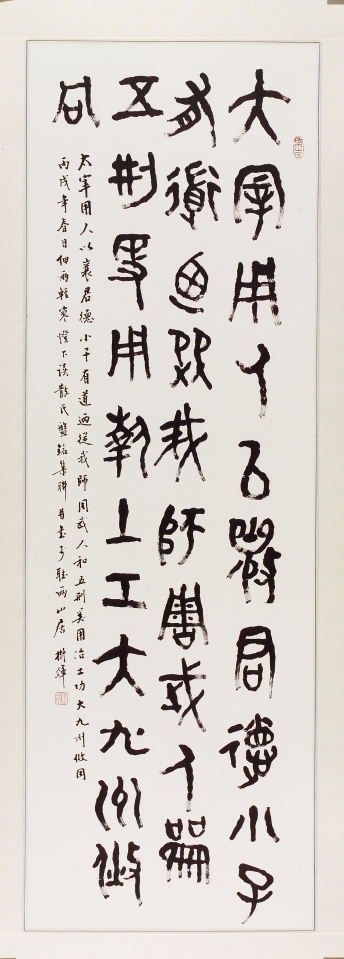 大宰用人以襄君德小子
有道迺從我師周或人龠
五刑矣用執士工大九州攸
同
太宰用人以襄君德小子有道迺從我師周或人和五刑矣用治士功大九州攸同
丙戌年春日細雨輕寒燈下讀散氏盤銘集聯並書於聽雨山居 樹